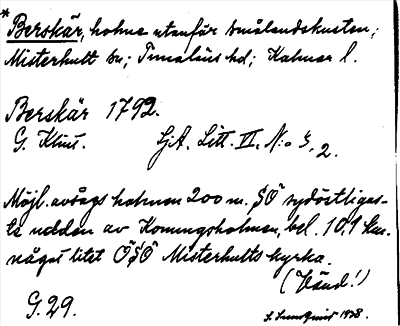 * Berskär, holme utanför Smålandskusten;
Misterhult sn; Tunaläns hd; Kalmar l.
Berskär 1792.
G. Klint. SjA. Litt. VI. N:o 3, 2.
Möjl. avsågs holmen 200 m. SO sydöstligas-
te udden av Kowningsholmen, bel. 10,1 km.
något litet ÖSÖ Misterhults kyrka.
(Vänd!)
G. 29. S. Lundquist 1938.